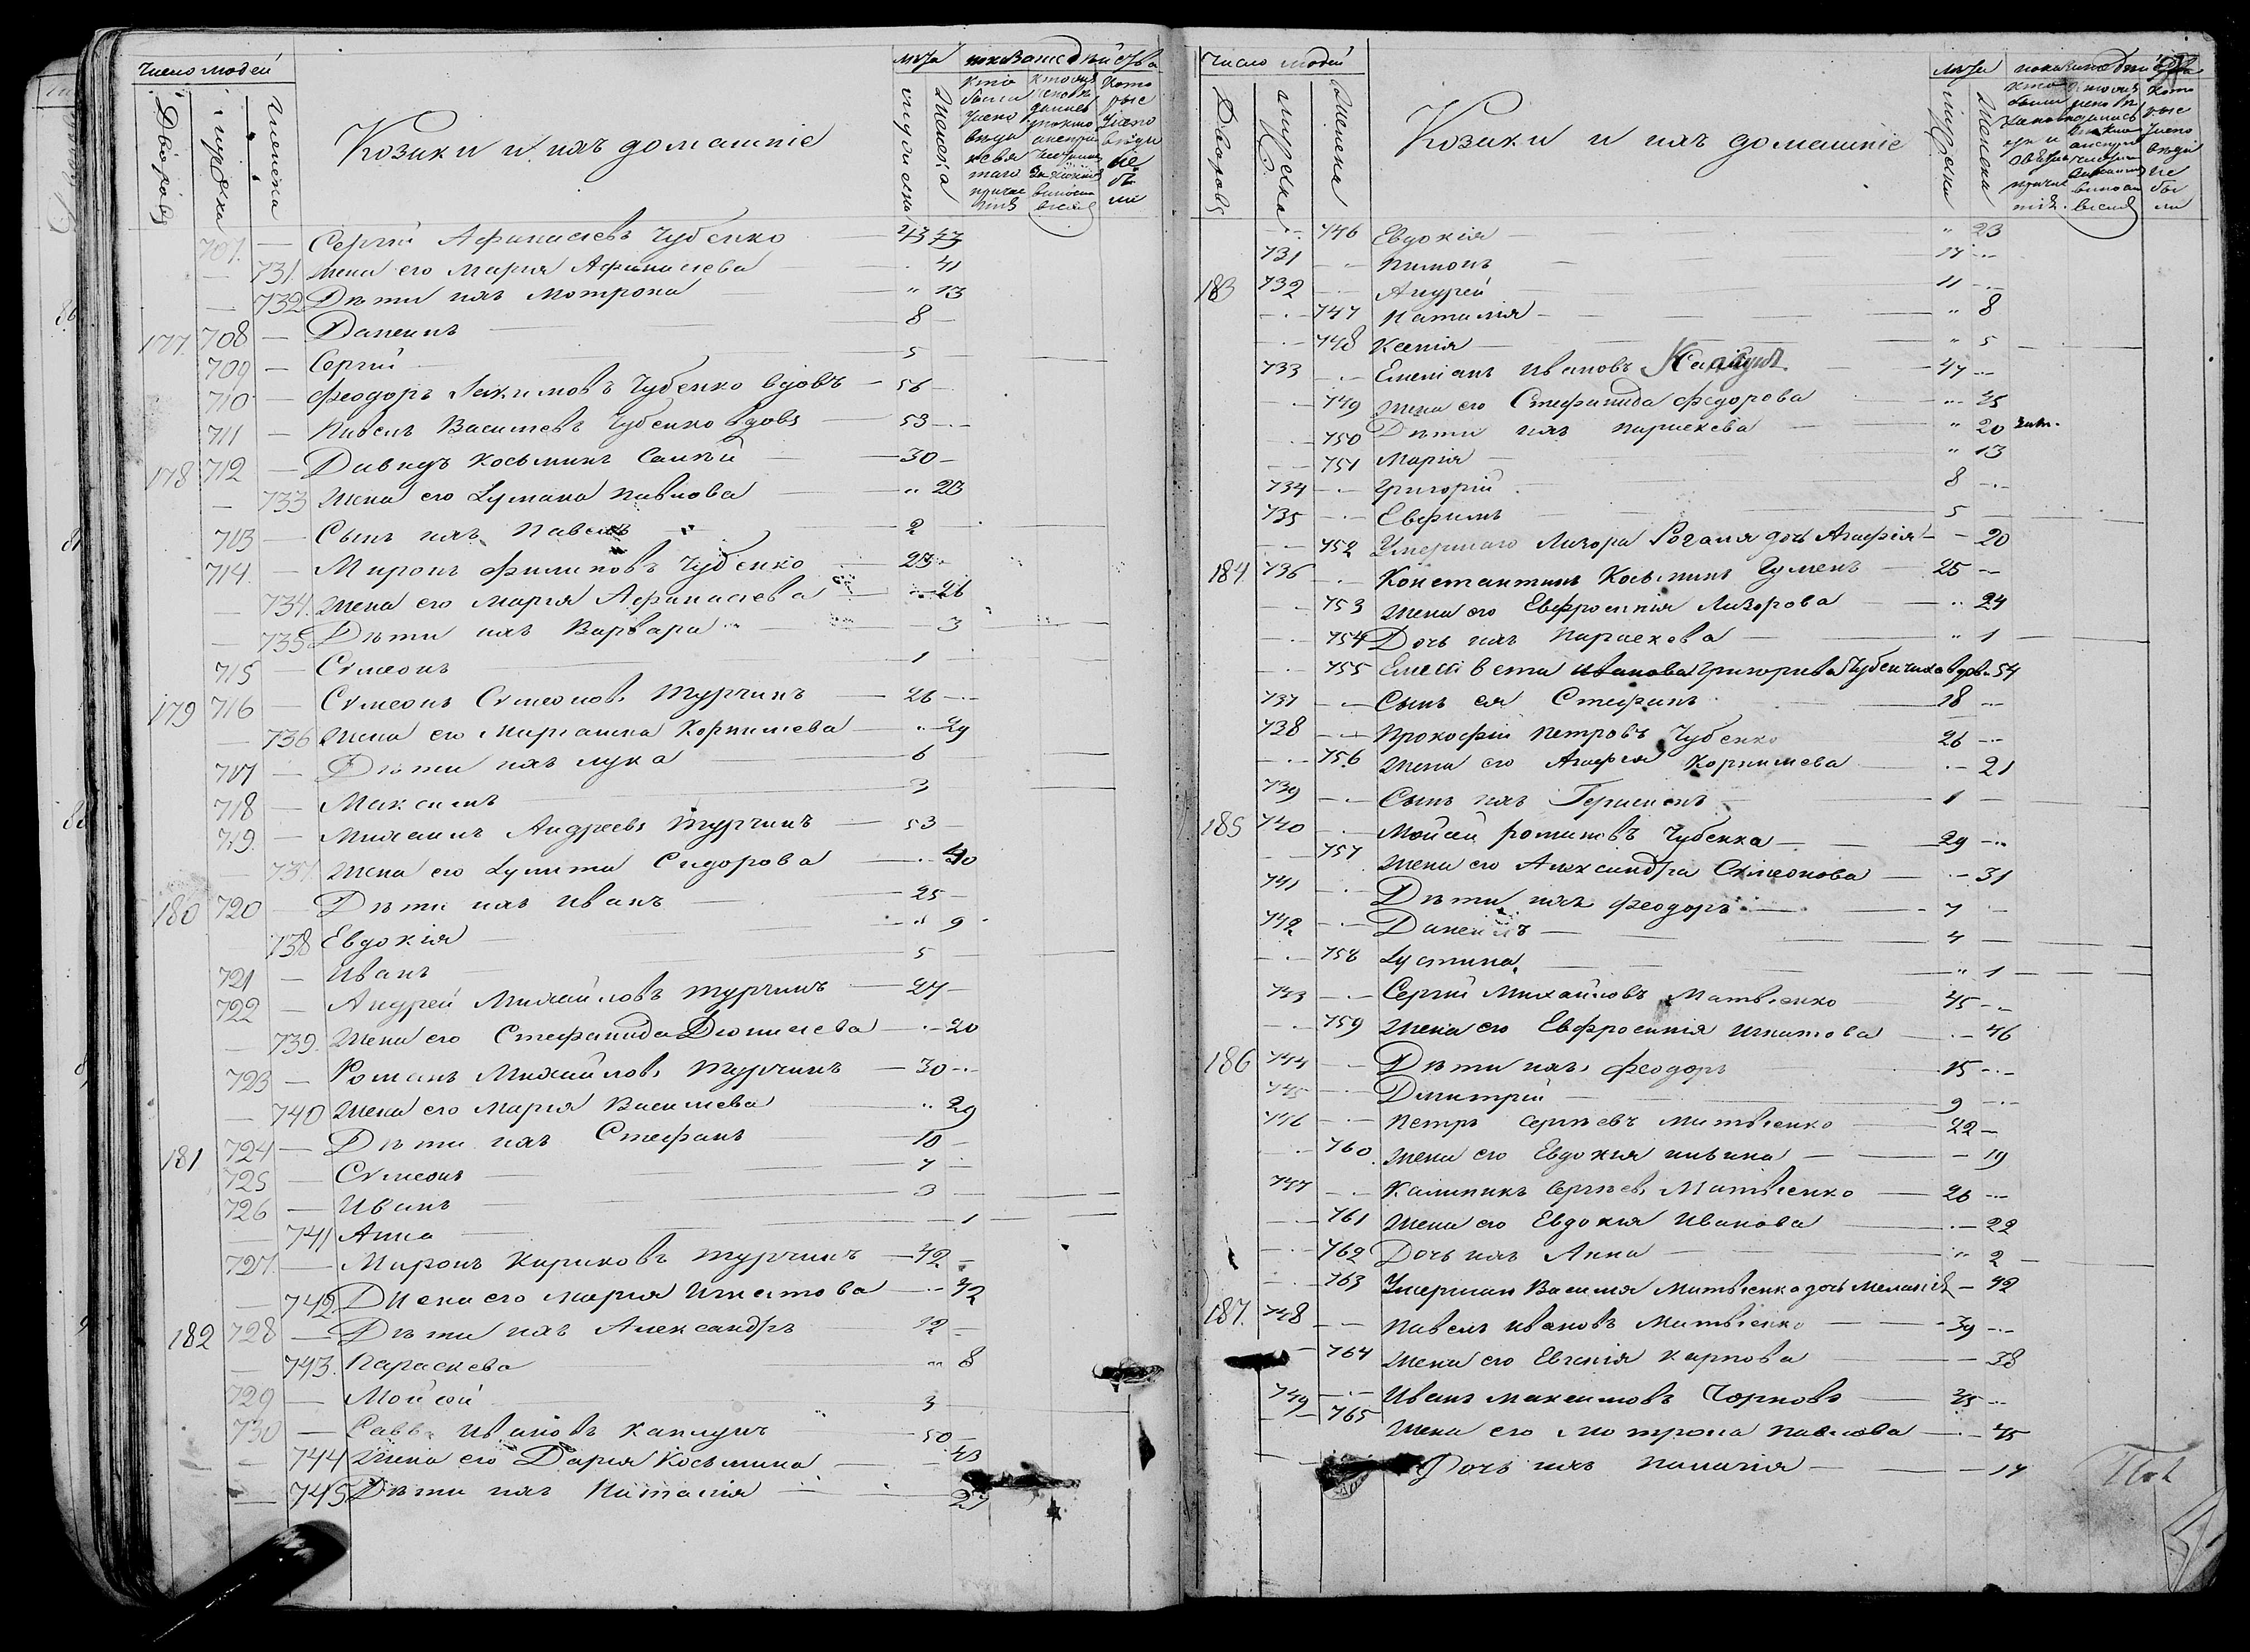 Число людей
Дворовъ
мужска
женска
Козаки и ихъ домашніе
лѣта
мужска
женска
показаніе дѣйства
707. — Сергій Афанасіевъ Чубенко — 43
— 731. Жена его Марія Афанасіева — 41
— 732 Дѣти ихъ Мотрона — " 13
177. 708 — Даніилъ — 8
709 — Сергій — 5
710 — Феодоръ Іакимовъ Чубенко вдовъ — 56
711 — Павелъ Васильевъ Чубенко вдовъ — 53
178 712 — Давидъ Косьминъ — 30
— 733 Жена его Іуліана Павлова — " 23
713 — Сынъ ихъ Павелъ — 2
714. — Миронъ Филиповъ Чубенко — 23
— 734. Жена его Марія Афанасіева — 26
— 735 Дѣти ихъ Варвара — 3
715 — Сѵмеонъ — 1
179 716 — Сѵмеонъ Сѵмеоновъ Турчинъ — 26
— 736 Жена его Маріанна Корнилиева — 29
717 — Дѣти ихъ Лука — 6
718 — Максимъ — 3
719. — Михаилъ Андреевъ Турчинъ — 53
— 737 Жена его Іулита Сидорова — 40
180 720 — Дѣти ихъ Иванъ — 25
738 Евдокія — " 9
721 — Иванъ — 5
722 — Андрей Михайловъ Турчинъ — 27
— 739. Жена его Стефанида Діонисіева — 20
723 — Романъ Михайловъ Турчинъ — 30
— 740 Жена его Марія Васильева — 29
181 724 — Дѣти ихъ Стефанъ — 10
725 — Сѵмеонъ — 7
726 — Иванъ — 3
— 741 Анна — 1
727. — Миронъ Кириковъ Турчинъ — 42
— 742 Жена его Марія Игнатова — 42
182 728 — Дѣти ихъ Александръ — 12
— 743. Параскева — " 8
729 — Мойсей — 3
730 — Савва Ивановъ Каплунъ — 50
— 744 Жена его Дарія Косьмина — 43
— 745 Дѣти ихъ Наталія — 27
Число людей
Дворовъ
мужска
женска
Козаки и ихъ домашніе
лѣта
мужска
женска
показаніе дѣйства
746 Евдокія — " 23
731 Пимонъ — 17
183 732 Андрей — 11
747 Наталія — " 8
748 Ксенія — " 5
733 Емеліанъ Ивановъ Каплунъ — 47
749 Жена его Стефанида Федорова — 45
750 Дѣти ихъ Параскева — " 20
751 Марія — " 13
734 Григорій — 8
735 Евфимъ — 5
752 Умершаго Лазора Рогаля дочь Агафія — 20
184 736 Константинъ Косьминъ — 25
753 Жена его Евфросинія Лазорова — 24
754 Дочь ихъ Параскева — " 1
755 Елисавета Иванова Григорьева Чубенчиха вдова 54
737 Сынъ ея Стефанъ — 18
738 Прокофій Петровъ Чубенко — 26
756 Жена его Агафія Корнилиева — 21
739 Сынъ ихъ Герасимъ — 1
185 740 Мойсей Романовъ Чубенко — 29
757 Жена его Александра Сѵмеонова — 31
741 Дѣти ихъ Феодоръ — 7
742 Даніилъ — 4
758 Іустина — " 1
743 Сергій Михайловъ Матвіенко — 45
759 Жена его Евфросинія Игнатова — 46
186 744 Дѣти ихъ Феодоръ — 15
745 Димитрій — 9
746 Петръ Сергѣевъ Матвіенко — 22
760 Жена его Евдокія — 19
747 Калиникъ Сергѣевъ Матвіенко — 26
761 Жена его Евдокія Иванова — 22
762 Дочь ихъ Анна — " 2
763 Умершаго Василія Матвіенка дочь Меланія — 42
187. 748 Павелъ Ивановъ Матвіенко — 39
764 Жена его Евгенія Карпова — 38
749 Иванъ Максимовъ — 45
765 Жена его Мотрона Павлова — 45
Дочь ихъ Палагія — 17